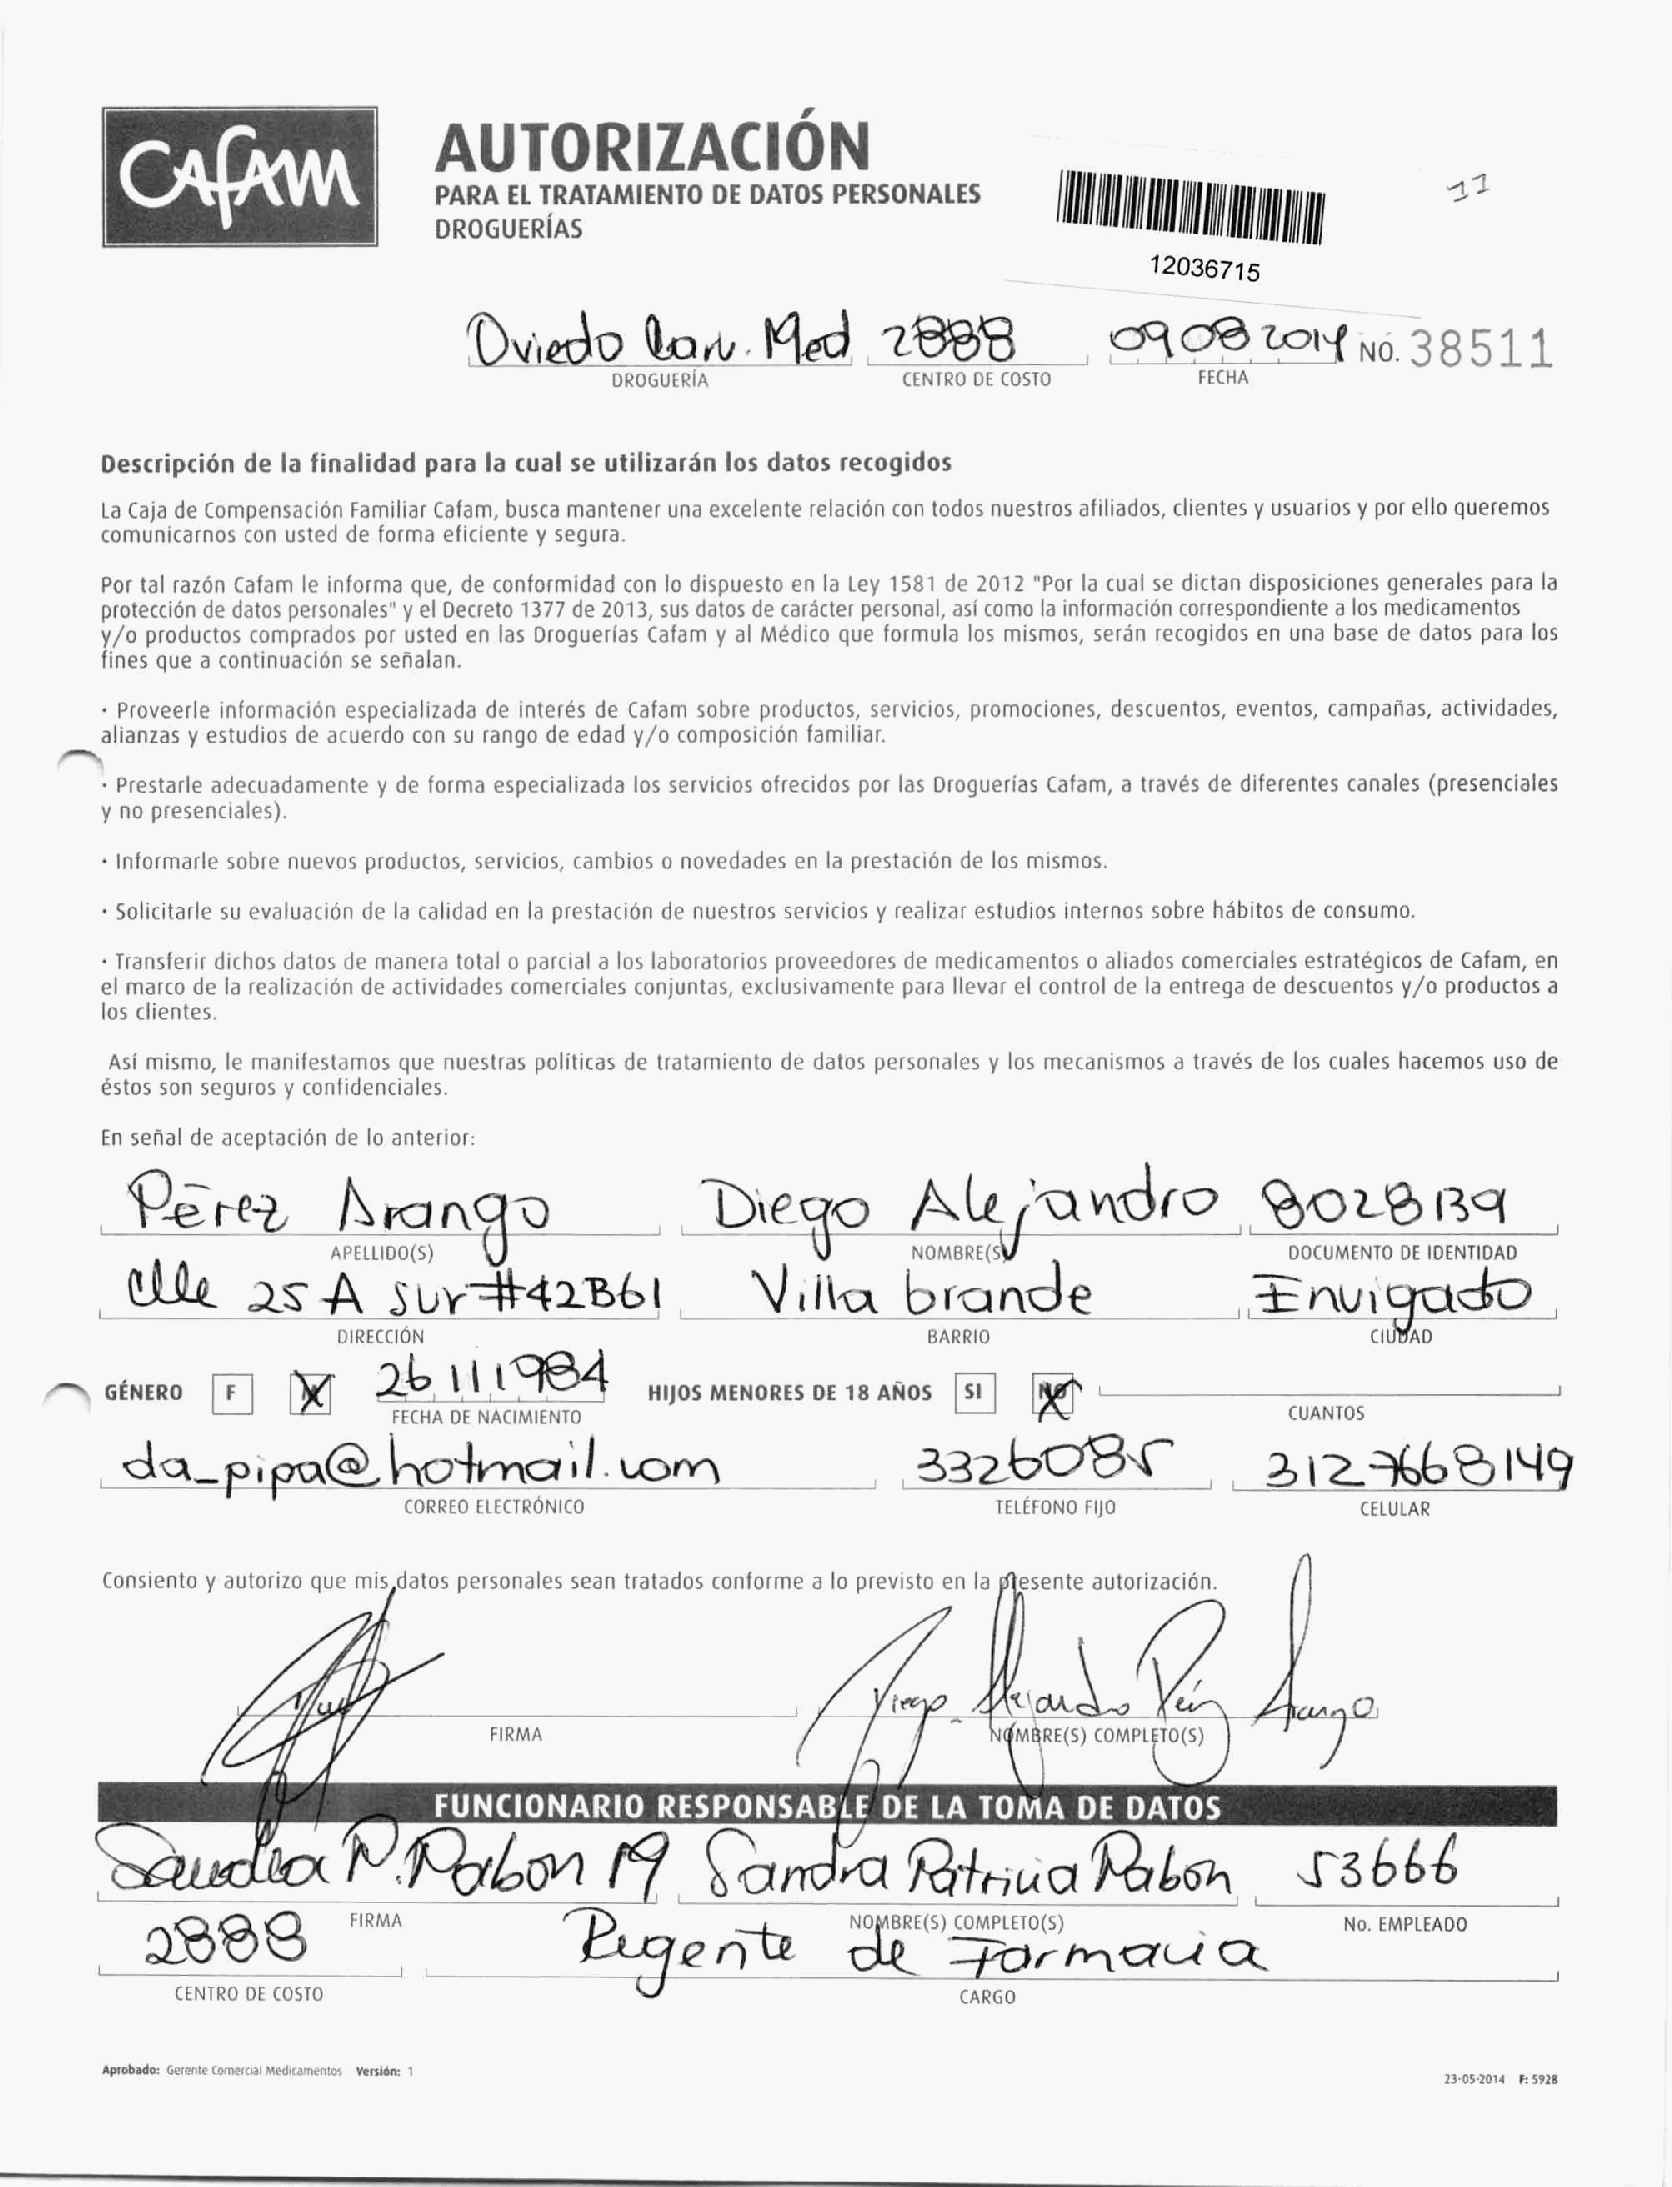 Cafam
AUTORIZACIÓN
PARA EL TRATAMIENTO DE DATOS PERSONALES
DROGUERÍAS
11
12036715
Oviedo Med 2888 09 08 2014 NO. 38511
DROGUERÍA CENTRO DE COSTO FECHA
Descripción de la finalidad para la cual se utilizarán los datos recogidos
La Caja de Compensación Familiar Cafam, busca mantener una excelente relación con todos nuestros afiliados, clientes y usuarios y por ello queremos
comunicarnos con usted de forma eficiente y segura.
Por tal razón Cafam le informa que, de conformidad con lo dispuesto en la Ley 1581 de 2012 "Por la cual se dictan disposiciones generales para la
protección de datos personales" y el Decreto 1377 de 2013, sus datos de carácter personal, así como la información correspondiente a los medicamentos
y/o productos comprados por usted en las Droguerías Cafam y al Médico que formula los mismos, serán recogidos en una base de datos para los
fines que a continuación se señalan.
· Proveerle información especializada de interés de Cafam sobre productos, servicios, promociones, descuentos, eventos, campañas, actividades,
alianzas y estudios de acuerdo con su rango de edad y/o composición familiar.
· Prestarle adecuadamente y de forma especializada los servicios ofrecidos por las Droguerías Cafam, a través de diferentes canales (presenciales
y no presenciales).
· Informarle sobre nuevos productos, servicios, cambios o novedades en la prestación de los mismos.
· Solicitarle su evaluación de la calidad en la prestación de nuestros servicios y realizar estudios internos sobre hábitos de consumo.
· Transferir dichos datos de manera total o parcial a los laboratorios proveedores de medicamentos o aliados comerciales estratégicos de Cafam, en
el marco de la realización de actividades comerciales conjuntas, exclusivamente para llevar el control de la entrega de descuentos y/o productos a
los clientes.
Así mismo, le manifestamos que nuestras políticas de tratamiento de datos personales y los mecanismos a través de los cuales hacemos uso de
éstos son seguros y confidenciales.
En señal de aceptación de lo anterior:
Pérez Arango Diego Alejandro 8028139
APELLIDO(S) NOMBRE(S) DOCUMENTO DE IDENTIDAD
Clle 25 A sur #42B61 Villa brande Envigado
DIRECCIÓN BARRIO CIUDAD
GÉNERO F X 26 11 1984 HIJOS MENORES DE 18 AÑOS SI NO X
FECHA DE NACIMIENTO CUANTOS
da_pipa@hotmail.com 3326085 3127668149
CORREO ELECTRÓNICO TELÉFONO FIJO CELULAR
Consiento y autorizo que mis datos personales sean tratados conforme a lo previsto en la presente autorización.
Diego Alejandro Pérez Arango
FIRMA NOMBRE(S) COMPLETO(S)
FUNCIONARIO RESPONSABLE DE LA TOMA DE DATOS
Sandra P. Pabon 19 Sandra Patricia Pabon 53666
FIRMA NOMBRE(S) COMPLETO(S) No. EMPLEADO
2888 Regente de Farmacia
CENTRO DE COSTO CARGO
Aprobado: Gerente Comercial Medicamentos Versión: 1
23-05-2014 F: 5928